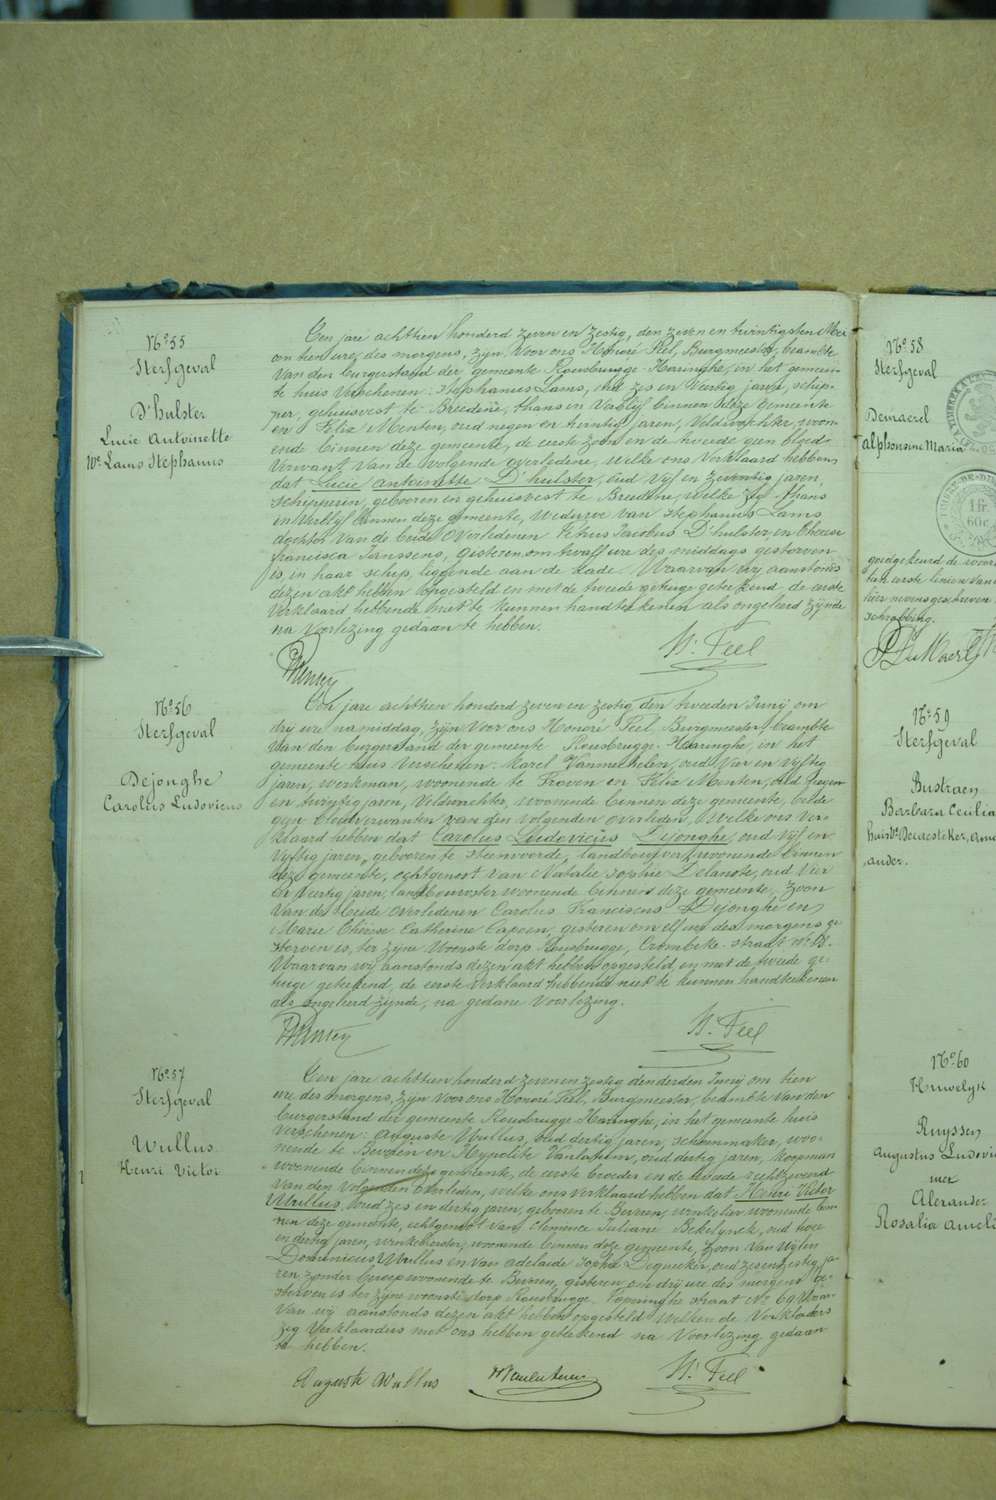 No 55
Sterfgeval
D'hulster
Lucie Antoinette
We Lams Stephanus
Een jare achttien honderd zeven en zestig, den zeven en twintigsten Mei
om tien ure des morgens, zijn voor ons Honoré Feel, Burgmeester, beambte
van den burgerstand der gemeente Rousbrugge-Haringhe, in het gemeen-
te huis verschenen: Stephanus Lams, oud zes en veertig jaren, schip-
per, gehuisvest te Breedene, thans in verblijf binnen deze gemeente
en Felix Menten, oud negen en twintig jaren, veldwachter, woon-
ende binnen deze gemeente, de eerste zoon en de tweede geen bloed-
verwant van de volgende overledene, welke ons verklaard hebben
dat Lucie antoinette D'hulster, oud vijf en zeventig jaren,
schipperin, geboren en gehuisvest te Breedene, welke zig thans
in verblijf binnen deze gemeente, weduwe van Stephanus Lams
dochter van de beide overledenen Petrus Jacobus D'hulster, en Therese
francisca Janssens, gisteren om twaelf ure des middags gestorven
is, in haar schip, liggende aan de kade. Waarvan wij aanstonds
dezen akt hebben opgesteld en met de tweede getuige geteekend, de eerste
verklaard hebbende niet te kunnen handteekenen als ongeleerd zijnde
na voorlezing gedaan te hebben.
H. Feel
No 56
Sterfgeval
Dejonghe
Carolus Ludovicus
Een jare achttien honderd zeven en zestig, den tweeden Junij om
drij ure na middag, zijn voor ons Honoré Feel, Burgmeester, beambte
van den burgerstand der gemeente Rousbrugge-Haaringhe, in het
gemeente huis verschenen: Karel Vanmechelen, oud vier en vijftig
jaren, werkman, woonende te Proven en Felix Menten, oud negen
en twintig jaren, veldwachter, woonende binnen deze gemeente, beide
gijn bloedverwanten van den volgenden overleden, welke ons ver-
klaard hebben dat Carolus Ludovicus Dejonghe, oud vijf en
vijftig jaren, geboren te Steenvoorde, landbouwer, woonende binnen
deze gemeente, echtgenoot van Natalie Sophie Delanote, oud vier
en veertig jaren, landbouwster woonende binnen deze gemeente, zoon
van de beide overledenen Carolus Franciscus Dejonghe en
Marie Therese Catherine Capoen, gisteren om elf ure des morgens ge-
storven is, ter zijne woonste dorp Rousbrugge, Crombeke-straat
Waarvan wij aanstonds dezen akt hebben opgesteld, en met de tweede ge-
tuige geteekend, de eerste verklaard hebbende niet te kunnen handteekenen
als ongeleerd zijnde, na gedane voorlezing.
H. Feel
No 57
Sterfgeval
Wullus
Henri Victor
Een jare achttien honderd zeven en zestig den derden Junij om tien
ure des morgens, zijn voor ons Honoré Feel, Burgmeester, beambte van den
burgerstand der gemeente Rousbrugge-Haringhe, in het gemeente huis
verschenen: Auguste Wullus, oud dertig jaren, schoenmaker, woo-
nende te Beveren en Hypolite Vanlatum, oud dertig jaren, koopman
woonende binnen deze gemeente, de eerste broeder en de tweede
van den volgenden overleden, welke ons verklaard hebben dat Henri Victor
Wullus, oud zes en dertig jaren, geboren te Beveren, winkelier woonende bin-
nen deze gemeente, echtgenoot van Clemence Juliane Bekelynck, oud twee
en dertig jaren, winkelierster, woonende binnen deze gemeente, zoon van wijlen
Dominicus Wullus en van adelaide sophie Dequeker, oud zes en zestig ja-
ren zonder beroep woonende te Beveren, gisteren om drij ure des morgens ge-
storven is ter zijne woonste dorp Rousbrugge, Poperinghe straat No 69 Waar-
van wij aanstonds dezen akt hebben opgesteld welken de verkladers
verklaarders met ons hebben geteekend na voorlezing gedaan
te hebben.
Auguste Wullus
H. Feel
No 58
Sterfgeval
Demaerel
alphonsine Maria
1 fr.
60 c.
goedgekeurd de
hier nevens geschreven
schrabbing.
No 59
Sterfgeval
Bustraen
Barbara Cecilia
No 60
Huwelijk
Ruyssen
Augustus Ludovi
met
Alexander
Rosalia Ameli